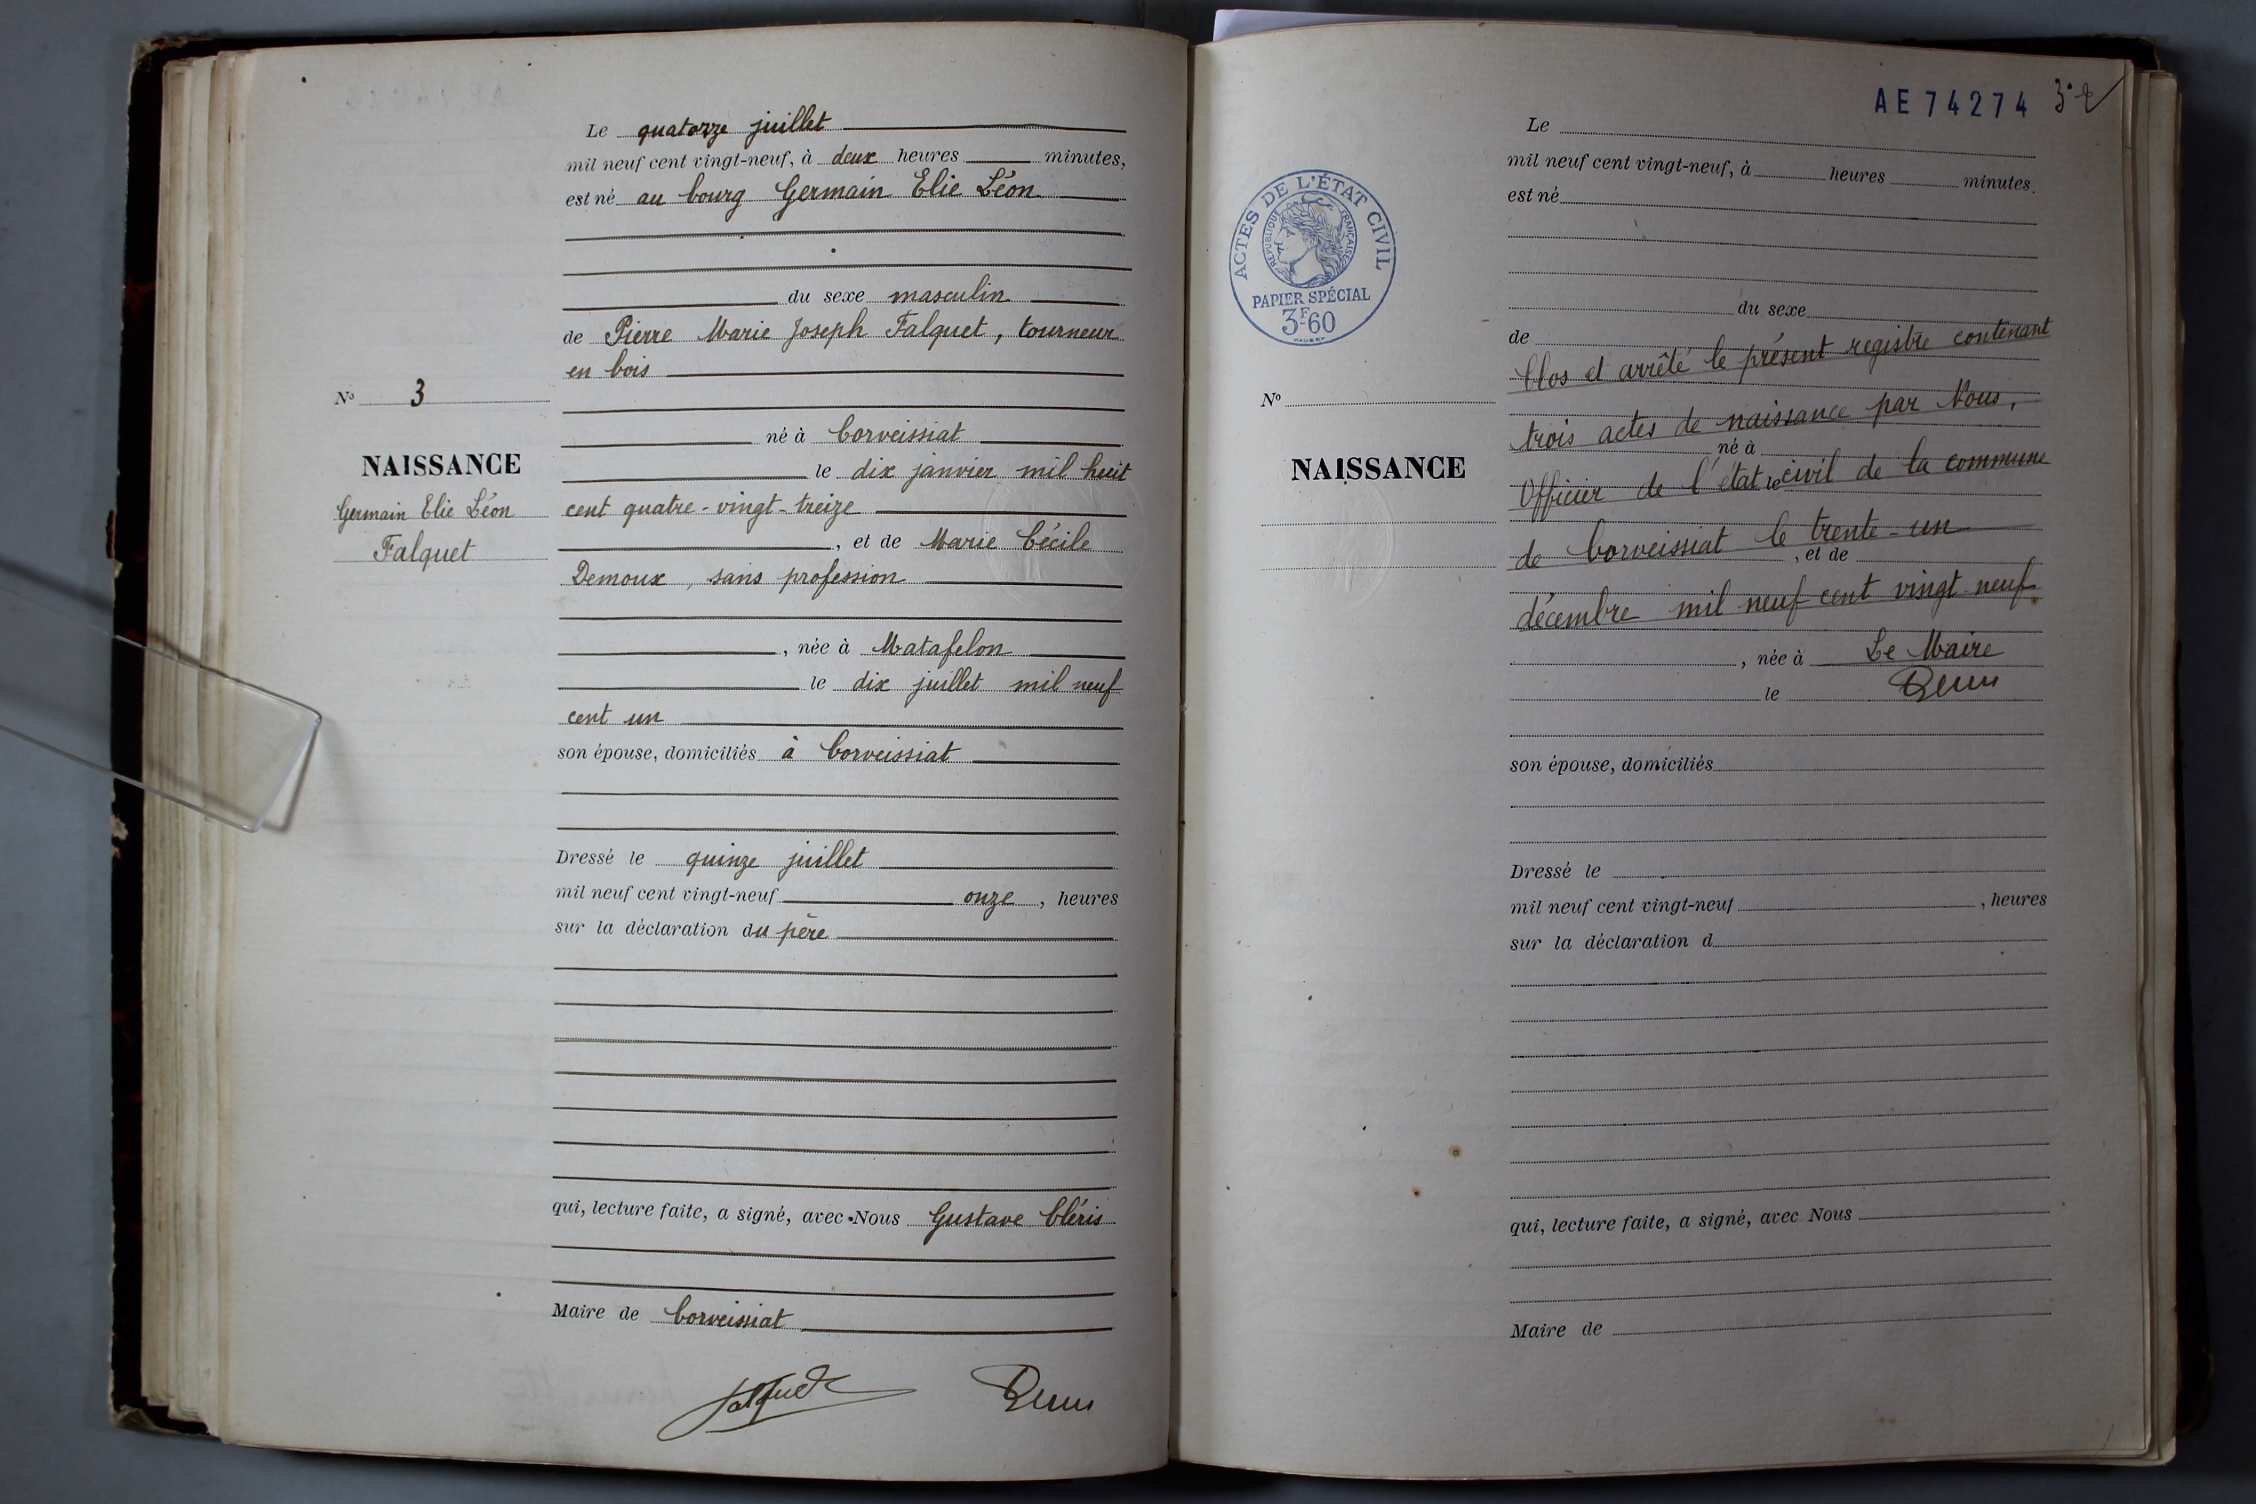 Le quatorze juillet
mil neuf cent vingt-neuf, à deux heures minutes,
est né au bourg Germain Elie Léon
du sexe masculin
de Pierre Marie Joseph Falquet, tourneur
en bois
né à Corveissiat
le dix janvier mil huit
cent quatre-vingt-treize
, et de Marie Cécile
Demoux, sans profession
, née à Matafelon
le dix juillet mil neuf
cent un
son épouse, domiciliés à Corveissiat
Dressé le quinze juillet
mil neuf cent vingt-neuf onze, heures
sur la déclaration du père
qui, lecture faite, a signé, avec Nous Gustave Cléris
Maire de Corveissiat
Falquet
No 3
NAISSANCE
Germain Elie Léon
Falquet
AE 74274
ACTES DE L'ÉTAT CIVIL
RÉPUBLIQUE FRANÇAISE
PAPIER SPÉCIAL
3F60
No
NAISSANCE
Le
mil neuf cent vingt-neuf, à heures minutes.
est né
du sexe
de
Clos et arrêté le présent registre contenant
trois actes de naissance par Nous,
né à
Officier de l'état civil de la commune
le
de Corveissiat le trente-un
, et de
décembre mil neuf cent vingt-neuf
, née à Le Maire
le
son épouse, domiciliés
Dressé le
mil neuf cent vingt-neuf , heures
sur la déclaration d
qui, lecture faite, a signé, avec Nous
Maire de